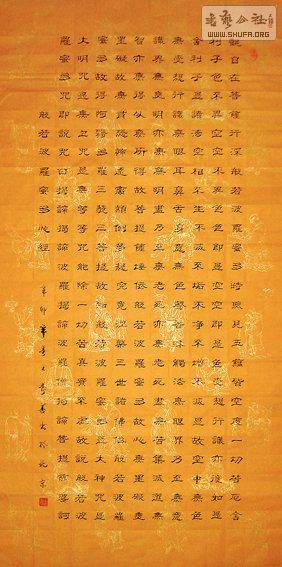 觀自在菩薩行深般若波羅蜜多時照見五蘊皆空度一切苦厄舍
利子色不異空空不異色色即是空空即是色受想行識亦復如是
舍利子是諸法空相不生不滅不垢不淨不增不減是故空中無色
無受想行識無眼耳鼻舌身意無色聲香味觸法無眼界乃至無意
識界無無明亦無無明盡乃至無老死亦無老死盡無苦集滅道無
智亦無得以無所得故菩提薩埵依般若波羅蜜多故心無罣礙無
罣礙故無有恐怖遠離顛倒夢想究竟涅槃三世諸佛依般若波羅
蜜多故得阿耨多羅三藐三菩提故知般若波羅蜜多是大神咒是
大明咒是無上咒是無等等咒能除一切苦真實不虛故說般若波
羅蜜多咒即說咒曰揭諦揭諦波羅揭諦波羅僧揭諦菩提薩婆訶
般若波羅蜜多心經
辛卯 書於北京
WWW.SHUFA.ORG